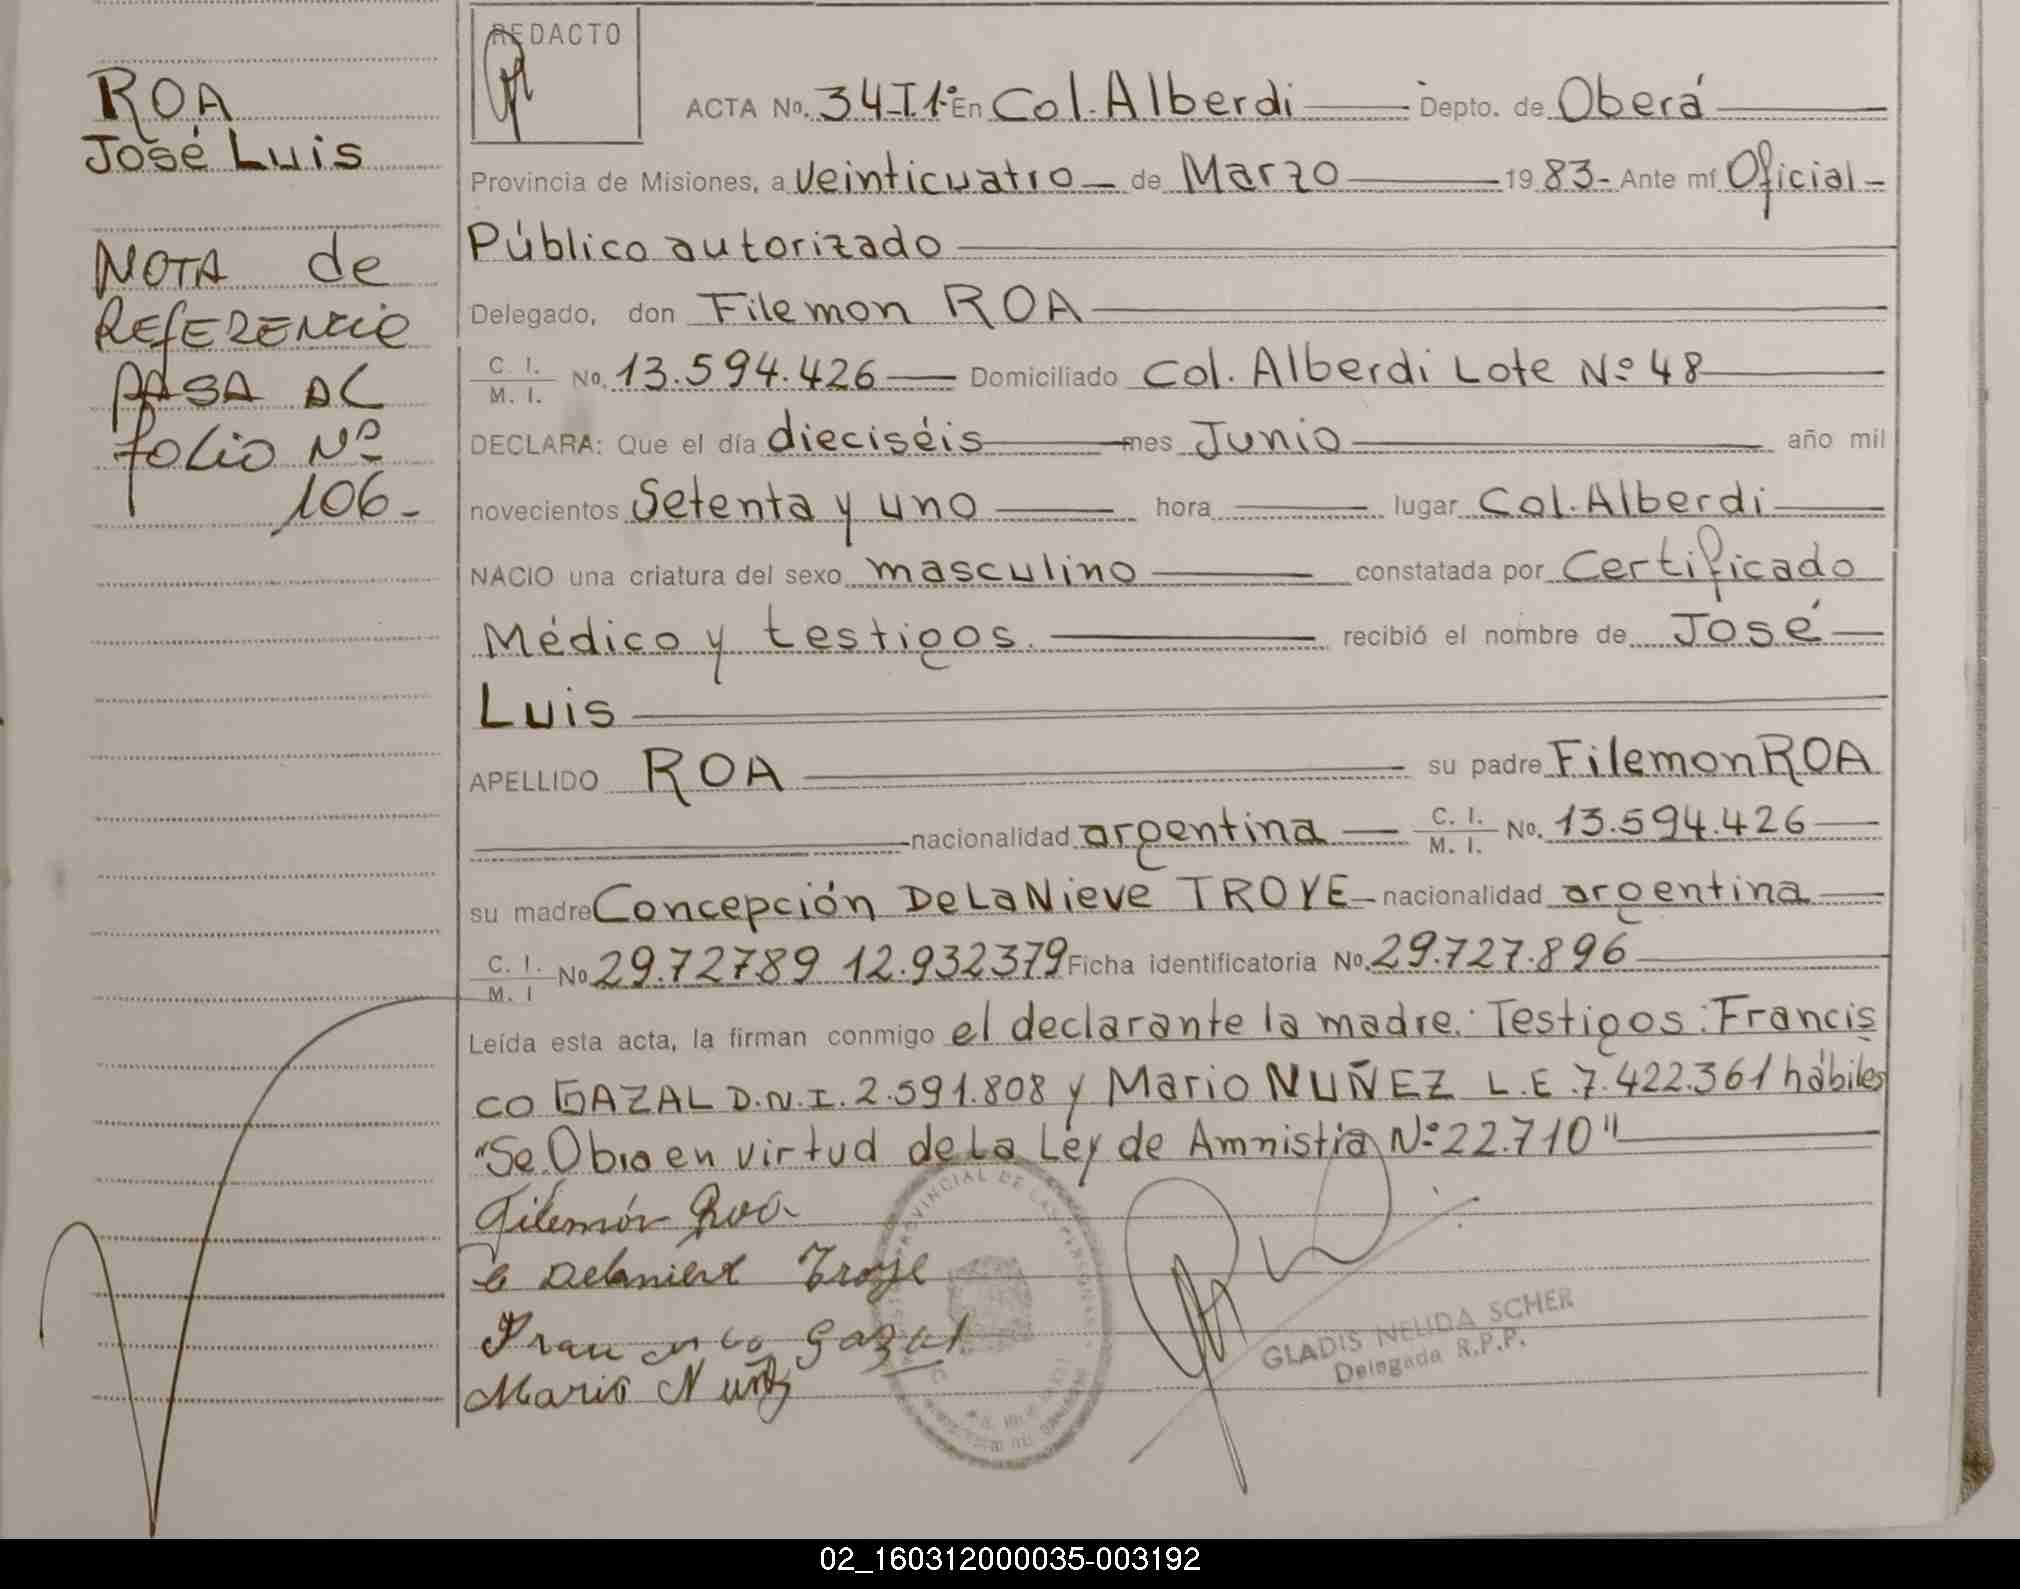 ROA
José Luis
NOTA de
REFERENCIA
PASA AL
FOLIO Nº
106-
REDACTO
ACTA No. 34-T.1º En Col. Alberdi Depto. de Oberá
Provincia de Misiones, a veinticuatro de Marzo 19 83- Ante mí Oficial
Público autorizado
Delegado, don Filemon ROA
C. I. / M. I. No. 13.594.426 Domiciliado Col. Alberdi Lote Nº 48
DECLARA: Que el día dieciséis mes Junio año mil
novecientos Setenta y uno hora lugar Col. Alberdi
NACIO una criatura del sexo masculino constatada por Certificado
Médico y testigos. recibió el nombre de José
Luis
APELLIDO ROA su padre Filemon ROA
nacionalidad argentina C. I. / M. I. No. 13.594.426
su madre Concepción De La Nieve TROYE nacionalidad argentina
C. I. / M. I No 29.72789 12.932379 Ficha identificatoria No. 29.727.896
Leída esta acta, la firman conmigo el declarante la madre. Testigos: Francis
co GAZAL D.N.I. 2.591.808 y Mario NUÑEZ L.E. 7.422.361 hábiles
"Se Obra en virtud de La Ley de Amnistia Nº 22.710"
Filemón Roa
Delanieve Troye
Francisco Gazal
Mario Nuñez
PROVINCIAL DE LAS PERSONAS
GLADIS NELIDA SCHER
Delegada R.P.P.
02_160312000035-003192